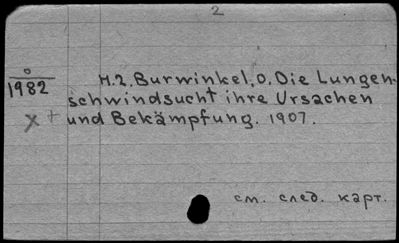 2
0
1982
x+
H.2. Burwinkel, O. Die Lungen-
schwindsucht ihre Ursachen
und Bekämpfung. 1907.
см. след. карт.